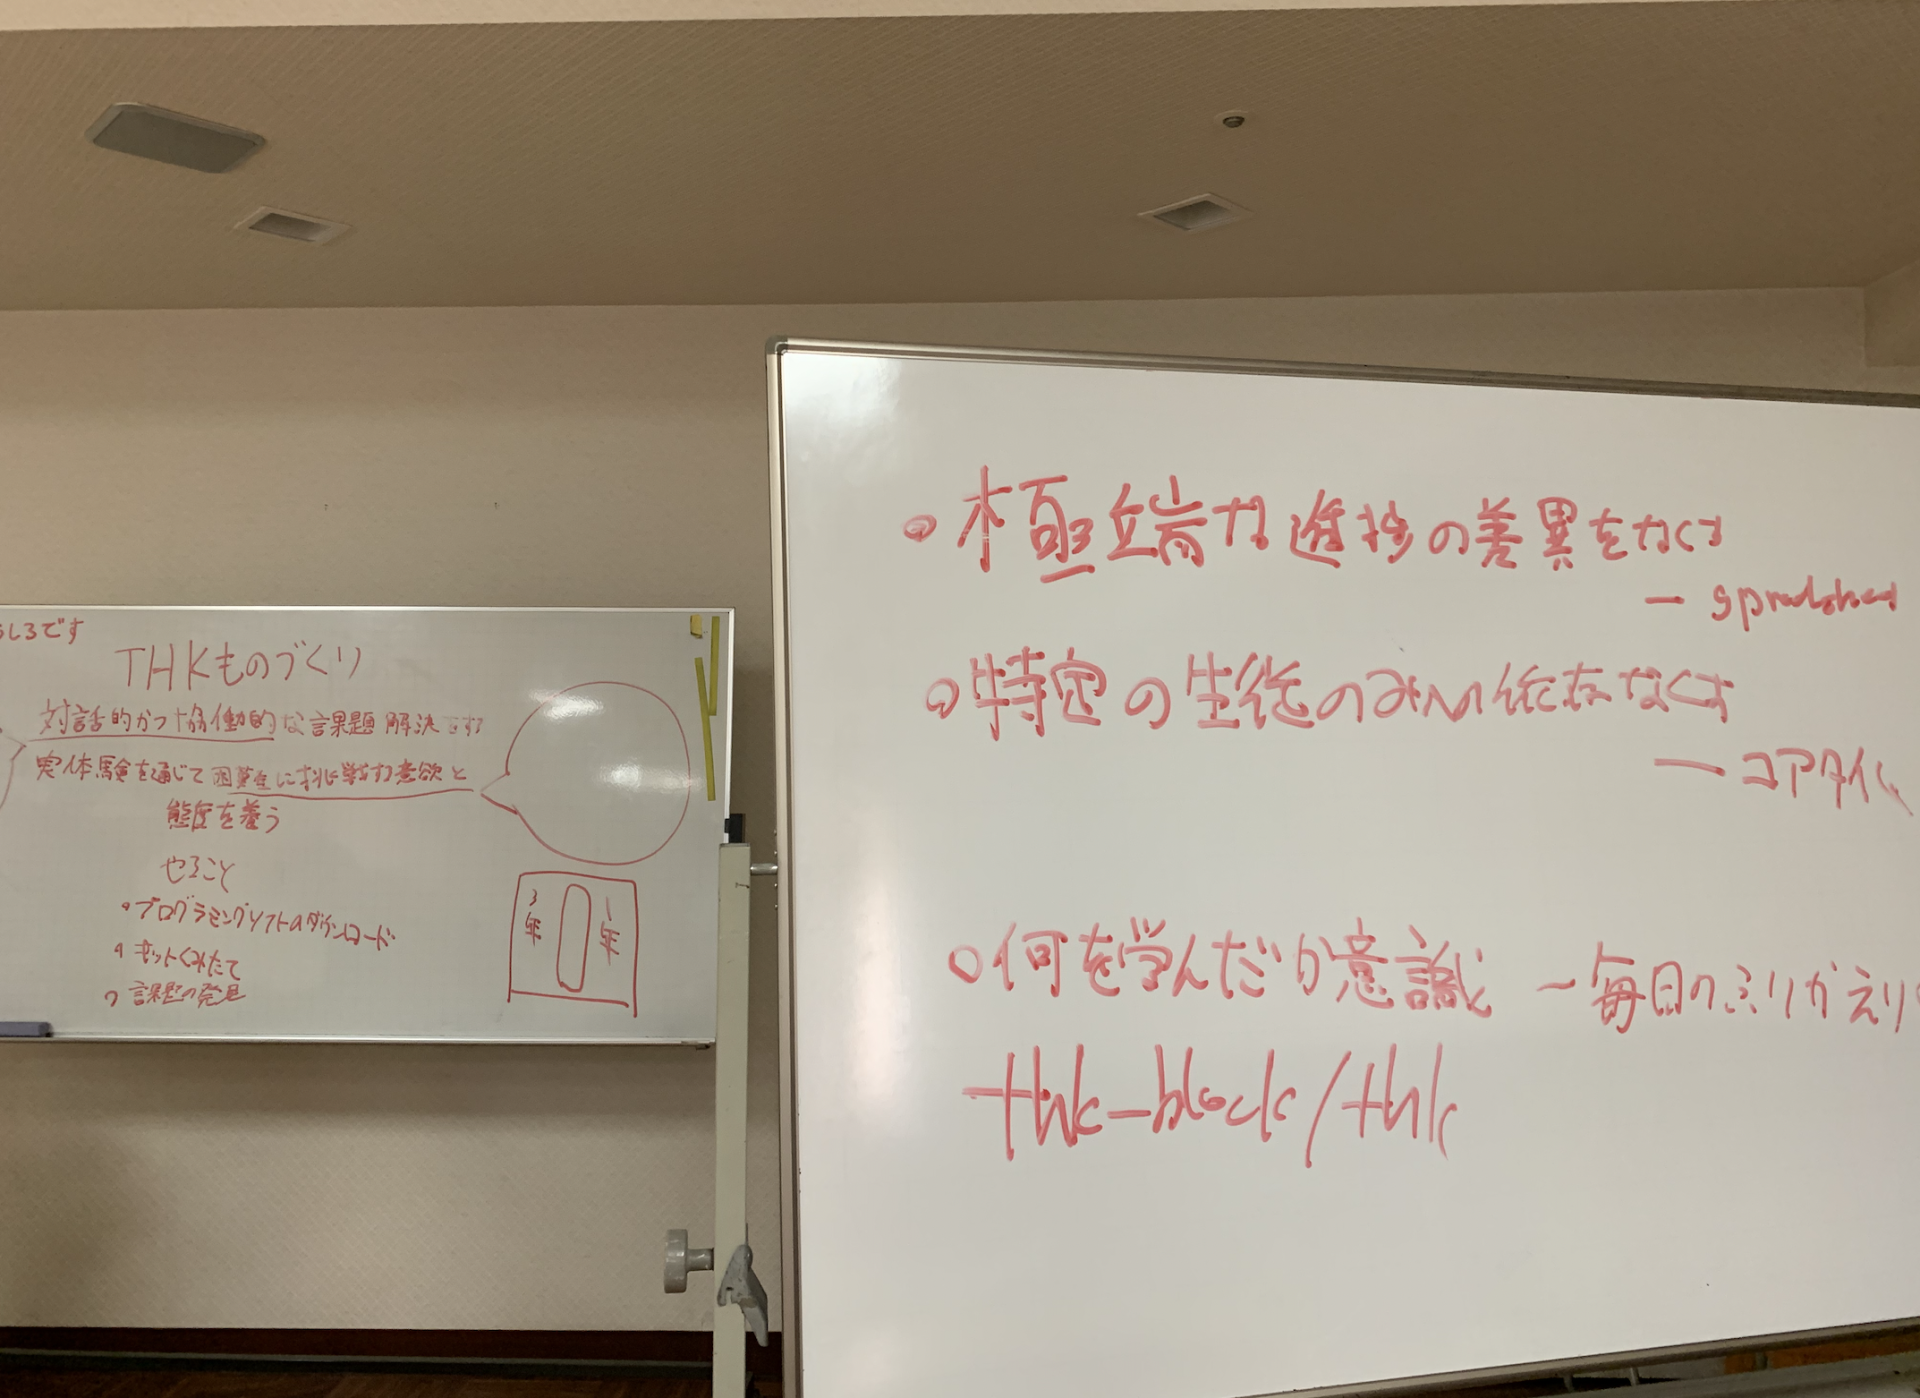 しろです
THKものづくり
対話的かつ協働的な課題解決をする
実体験を通じて困難に挑戦する意欲と
態度を養う
やること
・プログラミングソフトのダウンロード
・キットくみたて
・課題の発見
3年
1年
・極端な進捗の差異をなくす
― spreadsheet
○特定の生徒のみへ依存なくす
― コアタイム
○何を学んだか意識 ― 毎日のふりかえり
thk-block/thk